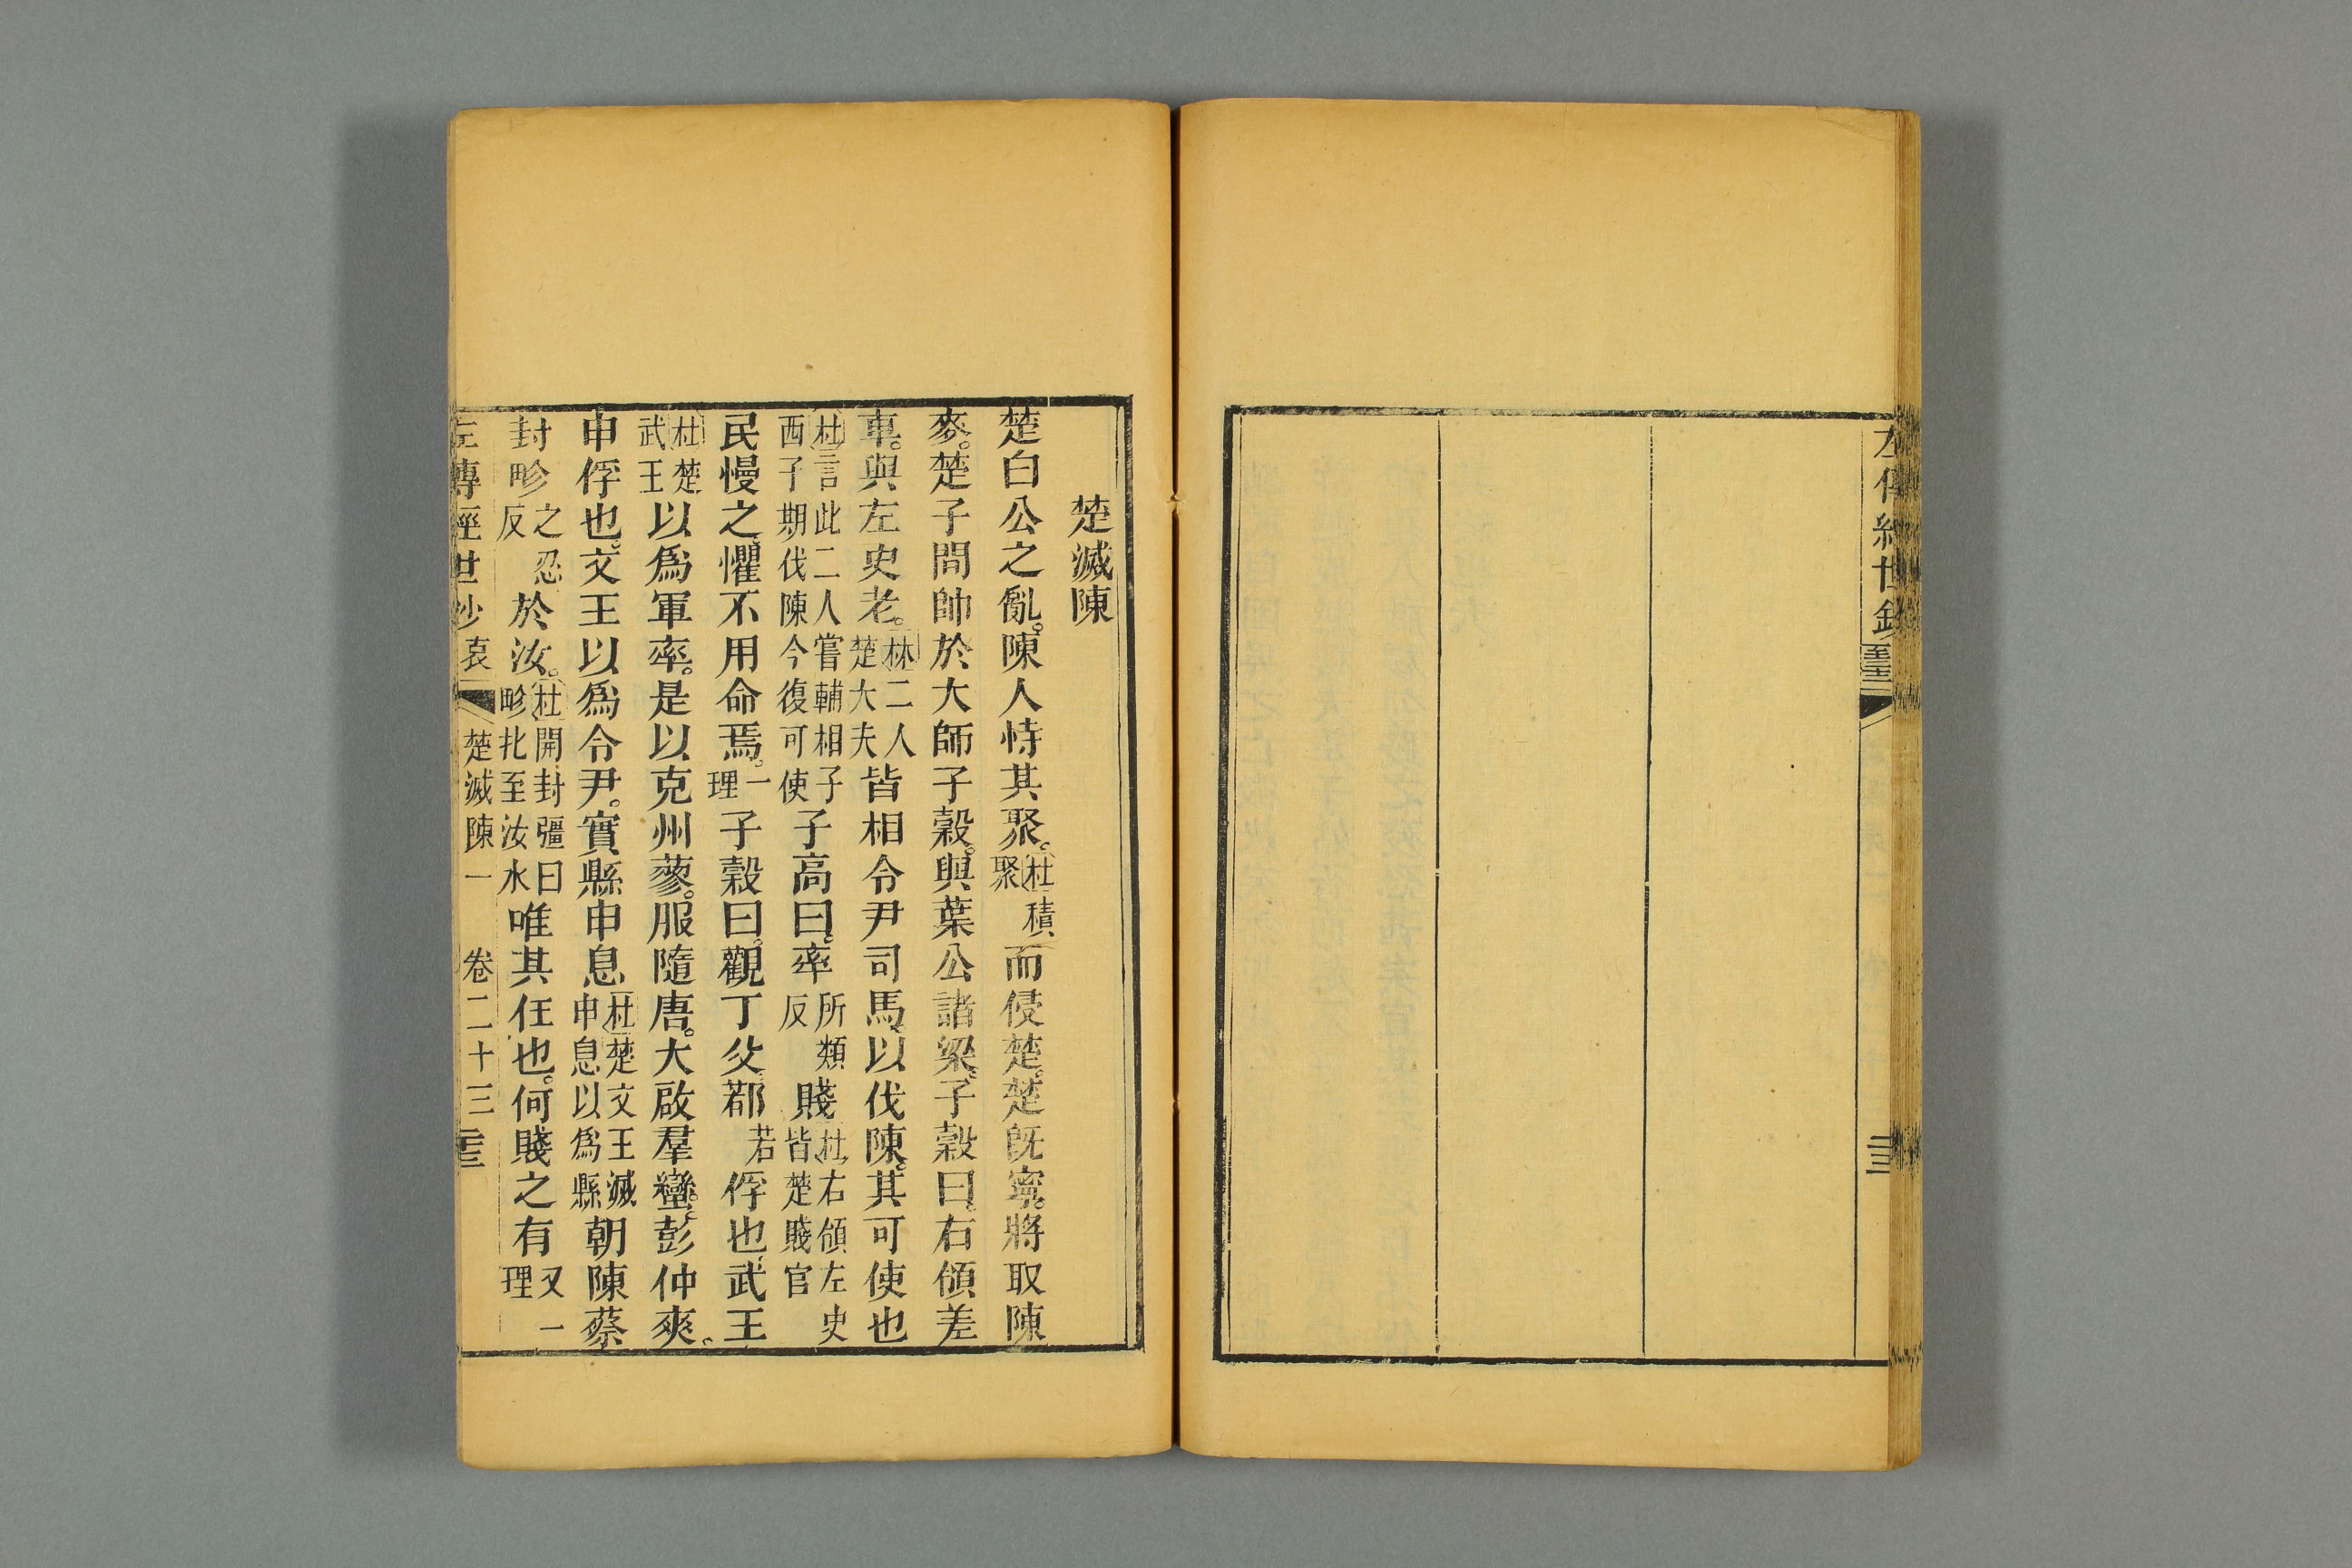 楚滅陳
楚白公之亂。陳人恃其聚。杜積聚而侵楚。楚既寧。將取陳
麥。楚子問帥於大師子穀。與葉公諸梁。子穀曰。右領差
車。與左史老。林二人楚大夫皆相令尹司馬。以伐陳。其可使也
杜言此二人嘗輔相子西子期伐陳今復可使子高曰。率所類反賤杜右領左史皆楚賤官
民慢之。懼不用命焉。一理子穀曰。觀丁父。鄀若俘也。武王
杜楚武王以為軍率。是以克州蓼。服隨唐。大啟羣蠻。彭仲爽。
申俘也。文王以為令尹。實縣申息杜楚文王滅申息以為縣朝陳蔡
封畛之忍反於汝。杜開封疆曰畛北至汝水唯其任也。何賤之有又一理
左傳經世鈔 哀 楚滅陳一 卷二十三
左傳經世鈔